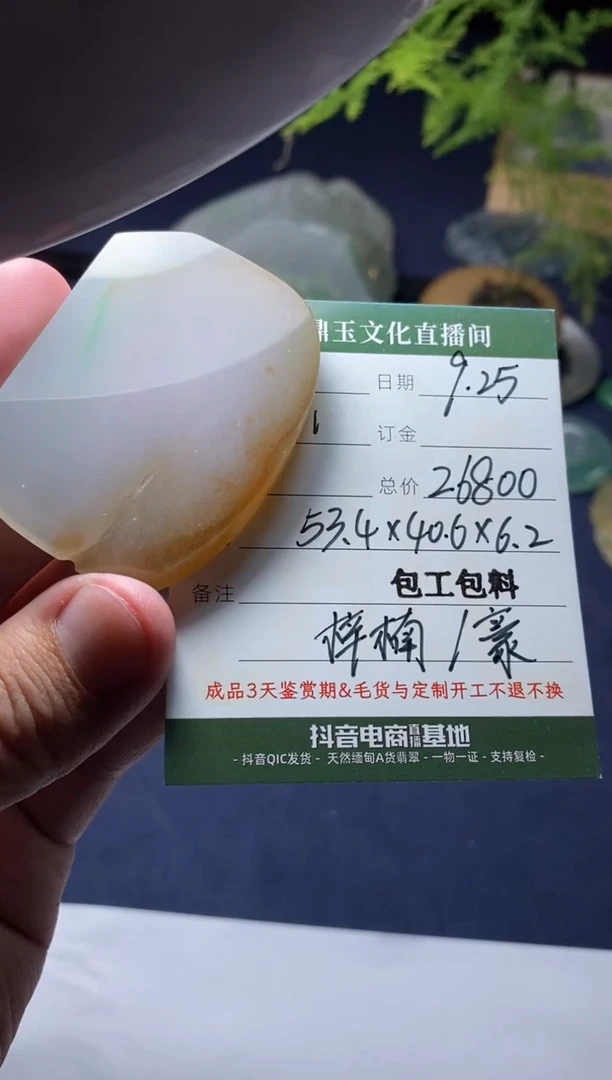 鼎玉文化直播间
日期 9.25
订金
总价 26800
53.4×40.6×6.2
备注 包工包料
梓楠 / 豪
成品3天鉴赏期&毛货与定制开工不退不换
抖音电商直播基地
- 抖音QIC发货 - 天然缅甸A货翡翠 - 一物一证 - 支持复检 -